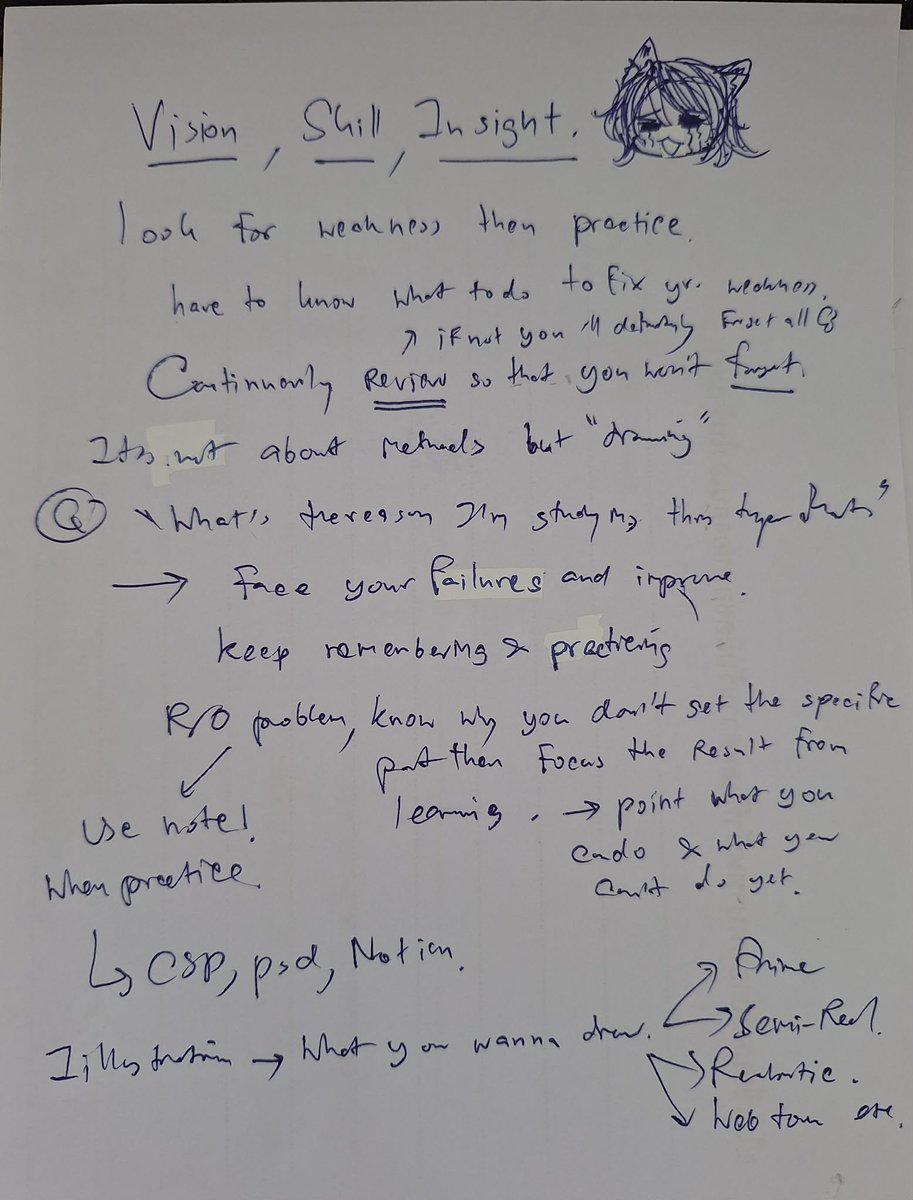 Vision, Skill, Insight.
look for weakness then practice.
have to know what to do to fix yr. weakness.
↗ if not you 'll definitely Forget all
Continuously Review so that you won't forget.
It's not about methods but "drawing"
Q "What's the reason I'm studying this
→ Face your failures and improve.
keep remembering & practicing
R/O problem, know why you don't get the specific
part then Focus the Result from
learning. → point what you
can do & what you
can't do yet.
Use note!
When practice.
↳ CSP, psd, Notion.
Illustration → What you wanna draw.
Anime
Semi-Real.
Realistic.
Webtoon etc.